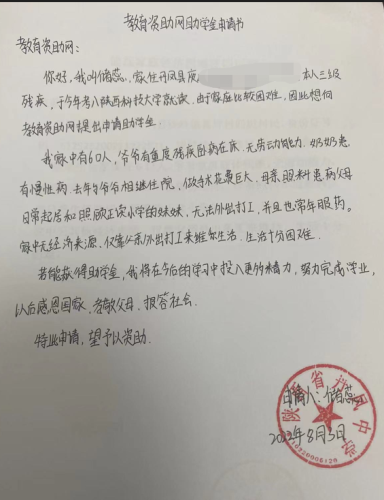 教育资助网助学金申请书
教育资助网：
你好，我叫储蕊，家住丹凤县庾 本人三级
残疾，于今年考入陕西科技大学就读。由于家庭比较困难，因此想向
教育资助网提出申请助学金。
我家中有6口人，爷爷有重度残疾卧病在床，无劳动能力，奶奶患
有慢性病，去年爷爷相继住院，做手术花费巨大，母亲照料患病父母
日常起居和照顾正读小学的妹妹，无法外出打工，并且也常年服药。
家中无经济来源，仅靠父亲外出打工来维持生活，生活十分困难。
若能获得助学金，我将在今后的学习中投入更多精力，努力完成学业，
以后感恩国家，孝敬父母，报答社会。
特此申请，望予以资助。
申请人：储蕊
2023年8月5日
陕西省丹凤中学